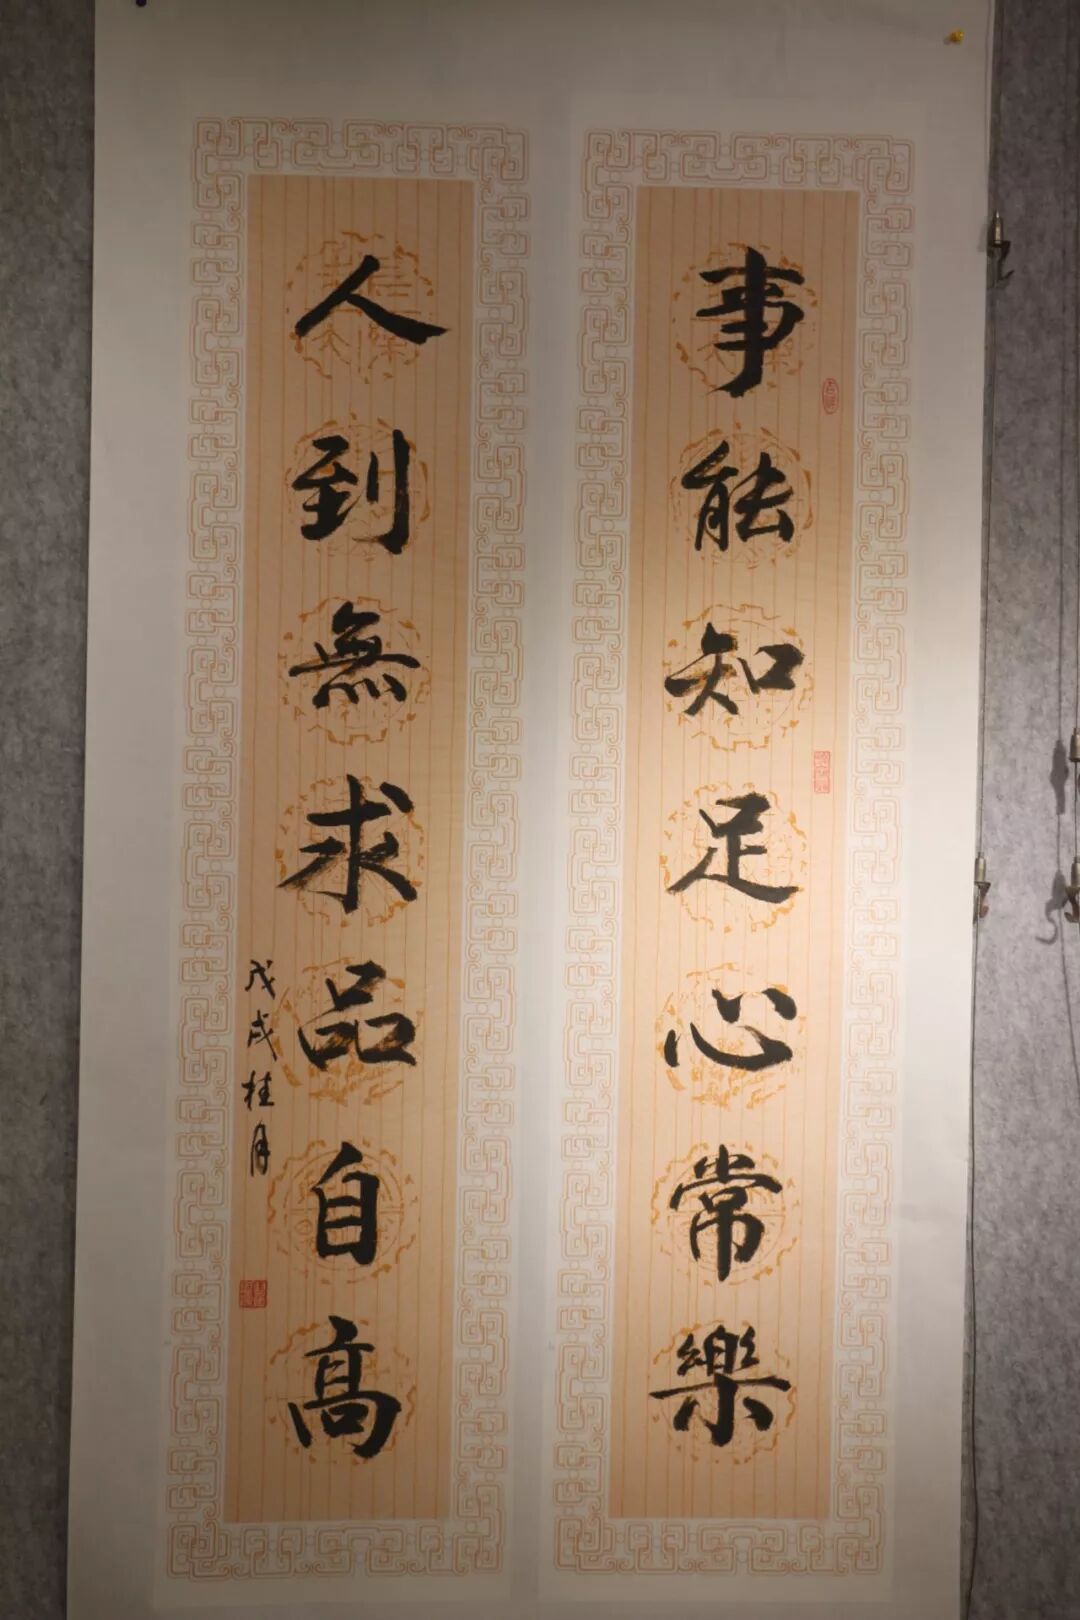 事能知足心常樂
人到無求品自高
戊戌桂月